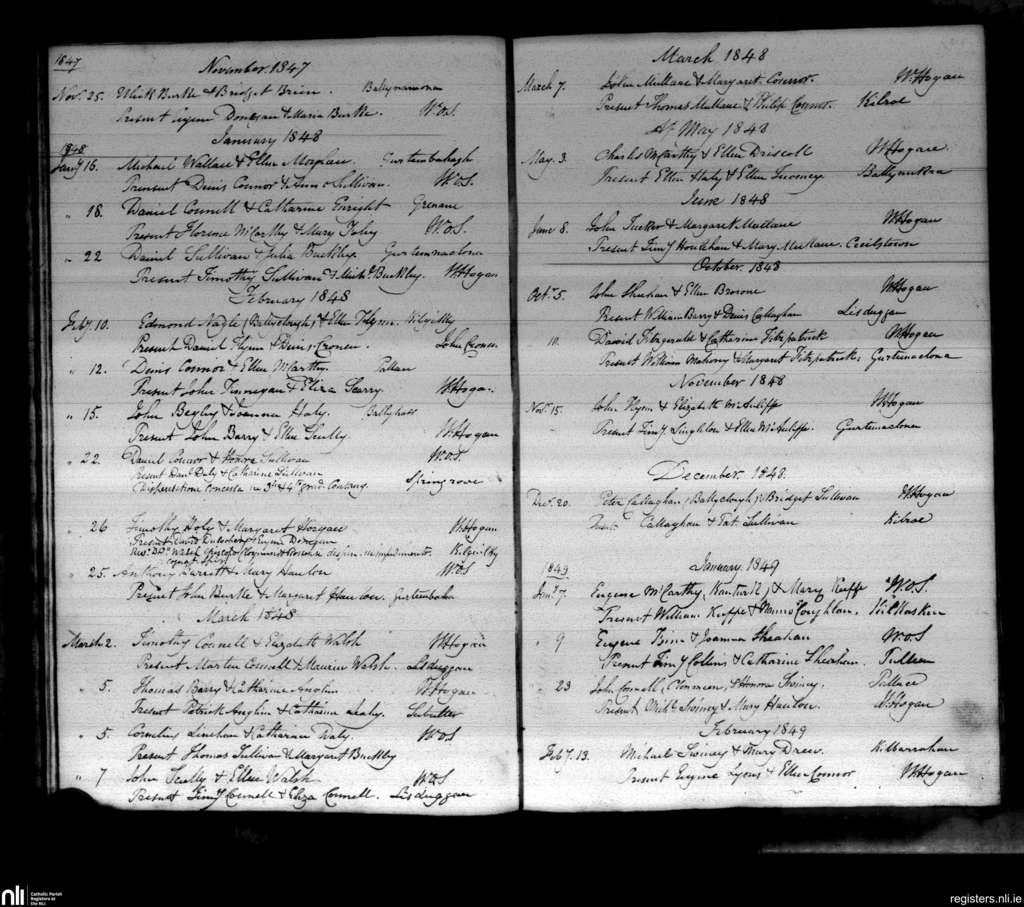 1847
November 1847
Nov. 25. Ulick Burke & Bridget Brien. Ballynamona
Present Eugene Donegan & Maria Burke. W.O.S.
January 1848
1848
Jany 16. Michael Wallace & Ellen Meaghan. Gurtenbahagh
Present Denis Connor & Ann O Sullivan. W.O.S.
" 18. Daniel Connell & Catharine Enright Grenane
Present Florence McCarthy & Mary Foley W.O.S.
" 22 Daniel Sullivan & Julia Buckley. Gurtennaclona
Present Timothy Sullivan & Michl Buckley. W Hogan
February 1848
Feby. 10. Edmond Nagle (Ballyclough) & Ellen Flynn.
Present Daniel Flynn & Denis Cronen. John Cronen
" 12. Denis Connor & Ellen McCarthy. Pallas
Present John Finnegan & Eliza W. Hogan
" 15. John Begley & Joanna Haly.
Present John Barry & Ellen Scully W. Hogan
" 22. Daniel Connor & Honora Sullivan W.O.S.
Present Danl Daly & Catharine Sullivan Springrove
Dispensatione Concessa in 3tio & 4to grad.
" 26 Timothy & Margaret Horgan W. Hogan
Present David & Eugene Donegan
Revd. Walsh
" 25. Anthony & Mary Hanlon W.O.S
Present John Burke & Margaret Hanlon. Gurtenbaha
March 1848
March 2. Timothy Connell & Elizabeth Walsh W Hogan
Present Martin Connell & Maurice Walsh. Lisduggan
" 5. Thomas Barry & Catharine Anglin W. Hogan
Present Patrick Anglin & Catharine Leahy. Subulter
" 5 Cornelius Linehan & Catharan Daly W.O.S
Present Thomas Sullivan & Margaret Buckley
" 7 John Scully & Ellen Walsh W.O.S
Present Timy Connell & Eliza Connell. Lisduggan
March 1848
March 7. John Mullane & Margaret Connor. W. Hogan
Present Thomas Mullane & Philip Connor. Kilroe
May 1848
May. 3. Charles McCarthy & Ellen Driscoll W Hogan.
Present Ellen Haly & Ellen Twomey.
June 1848
June 8. John Tucker & Margaret Mullane W. Hogan
Present Timy Houlihan & Mary Mullane. Cecilstown
October. 1848
Octr. 5. John Sheehan & Ellen Brosnan W. Hogan
Present William Barry & Denis Callaghan Lisduggan
" 10. David Fitzgerald & Catharine Fitzpatrick W. Hogan
Present William Mahony & Margaret Fitzpatrick. Gurtenaclona
November 1848
Novr. 15. John Flynn & Elizabeth McAuliffe W. Hogan
Present Timy Singleton & Ellen McAuliffe. Gurtenaclona
December. 1848.
Decr. 20. Peter Callaghan (Ballyclough) & Bridget Sullivan W Hogan
Callaghan & Pat. Sullivan Kilroe
January 1849
1849
Jany 7. Eugene McCarthy, (Kanturk) & Mary Keeffe W.O.S.
Present William Keeffe & Coughlan.
" 9 Eugene & Joanna Sheahan W.O.S
Present Timy Collins & Catharine Sheahan. Tulleen
" 23 John Connell, (Clonmeen) & Honora Swiney. Pallace
Present Michl Swiney & Mary Hanlon. W. Hogan
February 1849
Feby. 13. Michael Swiney & Mary Drew.
Present Eugene Lyons & Ellen Connor W. Hogan
nli
Catholic Parish
Registers at
the NLI
registers.nli.ie